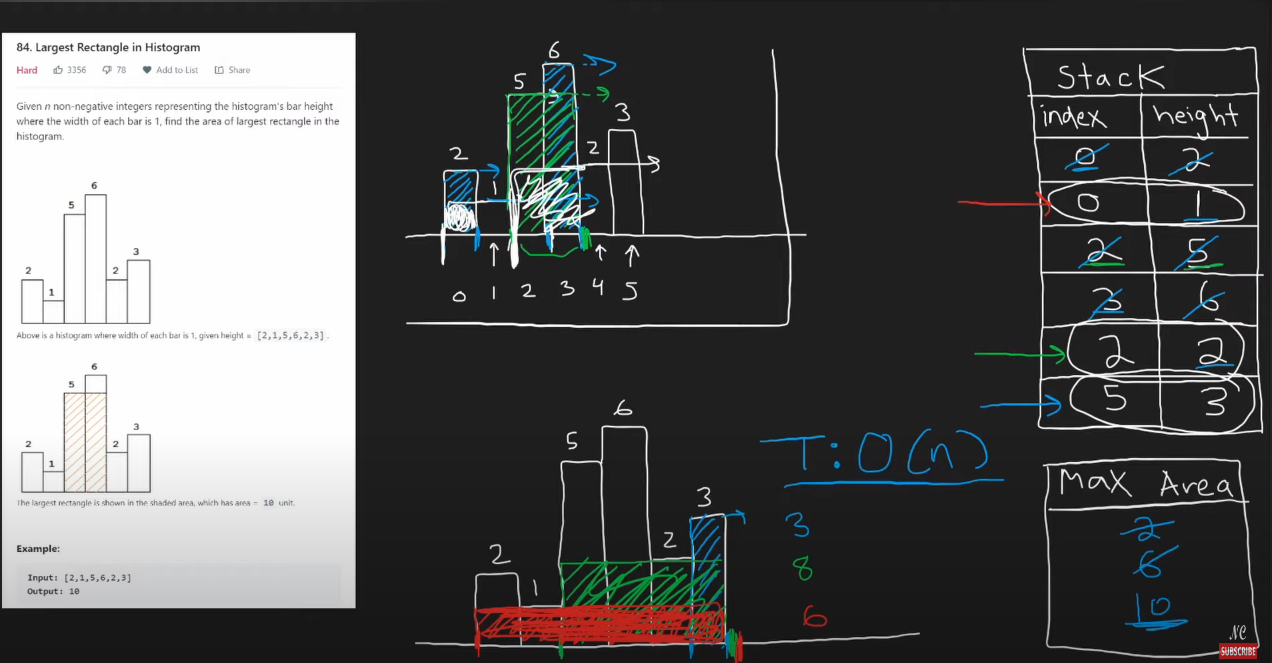 84. Largest Rectangle in Histogram
Hard 3356 78 Add to List Share
Given n non-negative integers representing the histogram's bar height
where the width of each bar is 1, find the area of largest rectangle in the
histogram.
6
5
3
2
2
1
Above is a histogram where width of each bar is 1, given height = [2,1,5,6,2,3].
6
5
3
2
2
1
The largest rectangle is shown in the shaded area, which has area = 10 unit.
Example:
Input: [2,1,5,6,2,3]
Output: 10
6
5
3
2
2
1
0 1 2 3 4 5
6
5
3
2
2
1
T: O(n)
3
8
6
Stack
index height
0 2
0 1
2 5
3 6
2 2
5 3
Max Area
2
6
10
NC
SUBSCRIBE